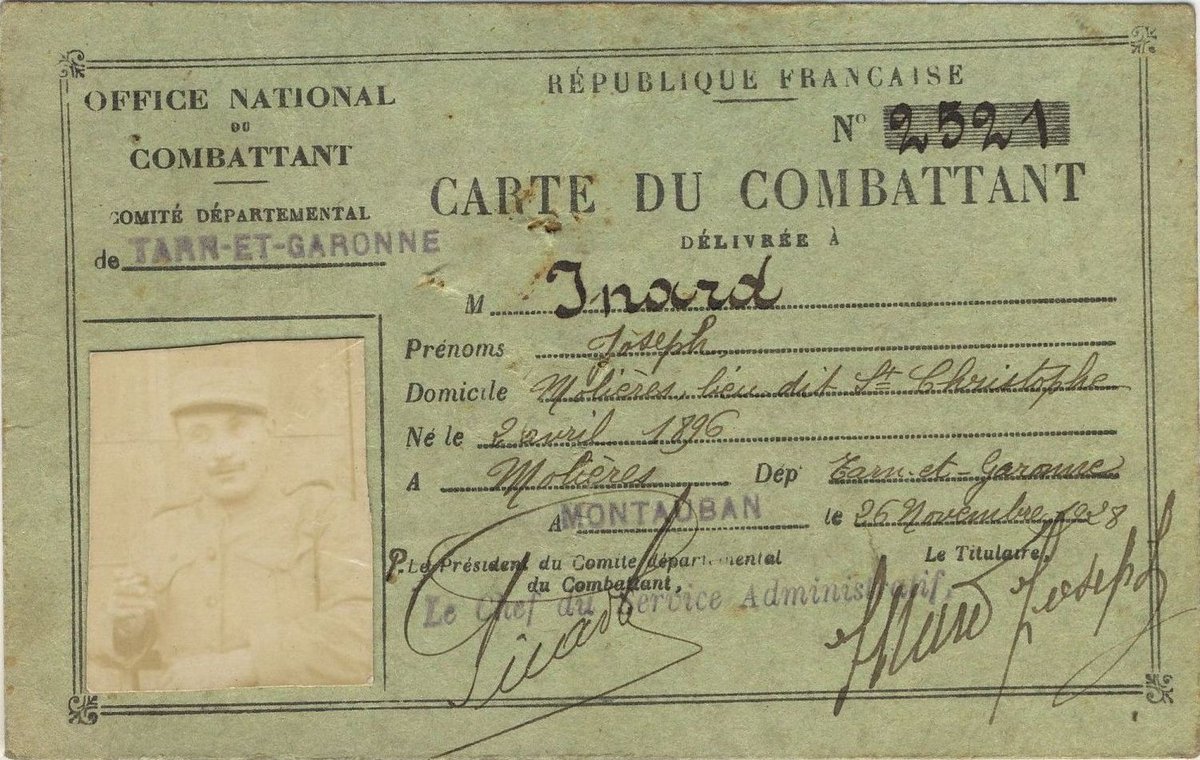 OFFICE NATIONAL
DU
COMBATTANT
COMITÉ DÉPARTEMENTAL
de TARN-ET-GARONNE
RÉPUBLIQUE FRANÇAISE
N° 2521
CARTE DU COMBATTANT
DÉLIVRÉE À
M Inard
Prénoms Joseph
Domicile Molières, lieu dit St Christophe
Né le 2 avril 1896
A Molières Dép Tarn-et-Garonne
A MONTAUBAN le 26 Novembre 1928
P. Le Président du Comité départemental
du Combattant,
Le Titulaire,
Le Chef du Service Administratif,
Inard Joseph